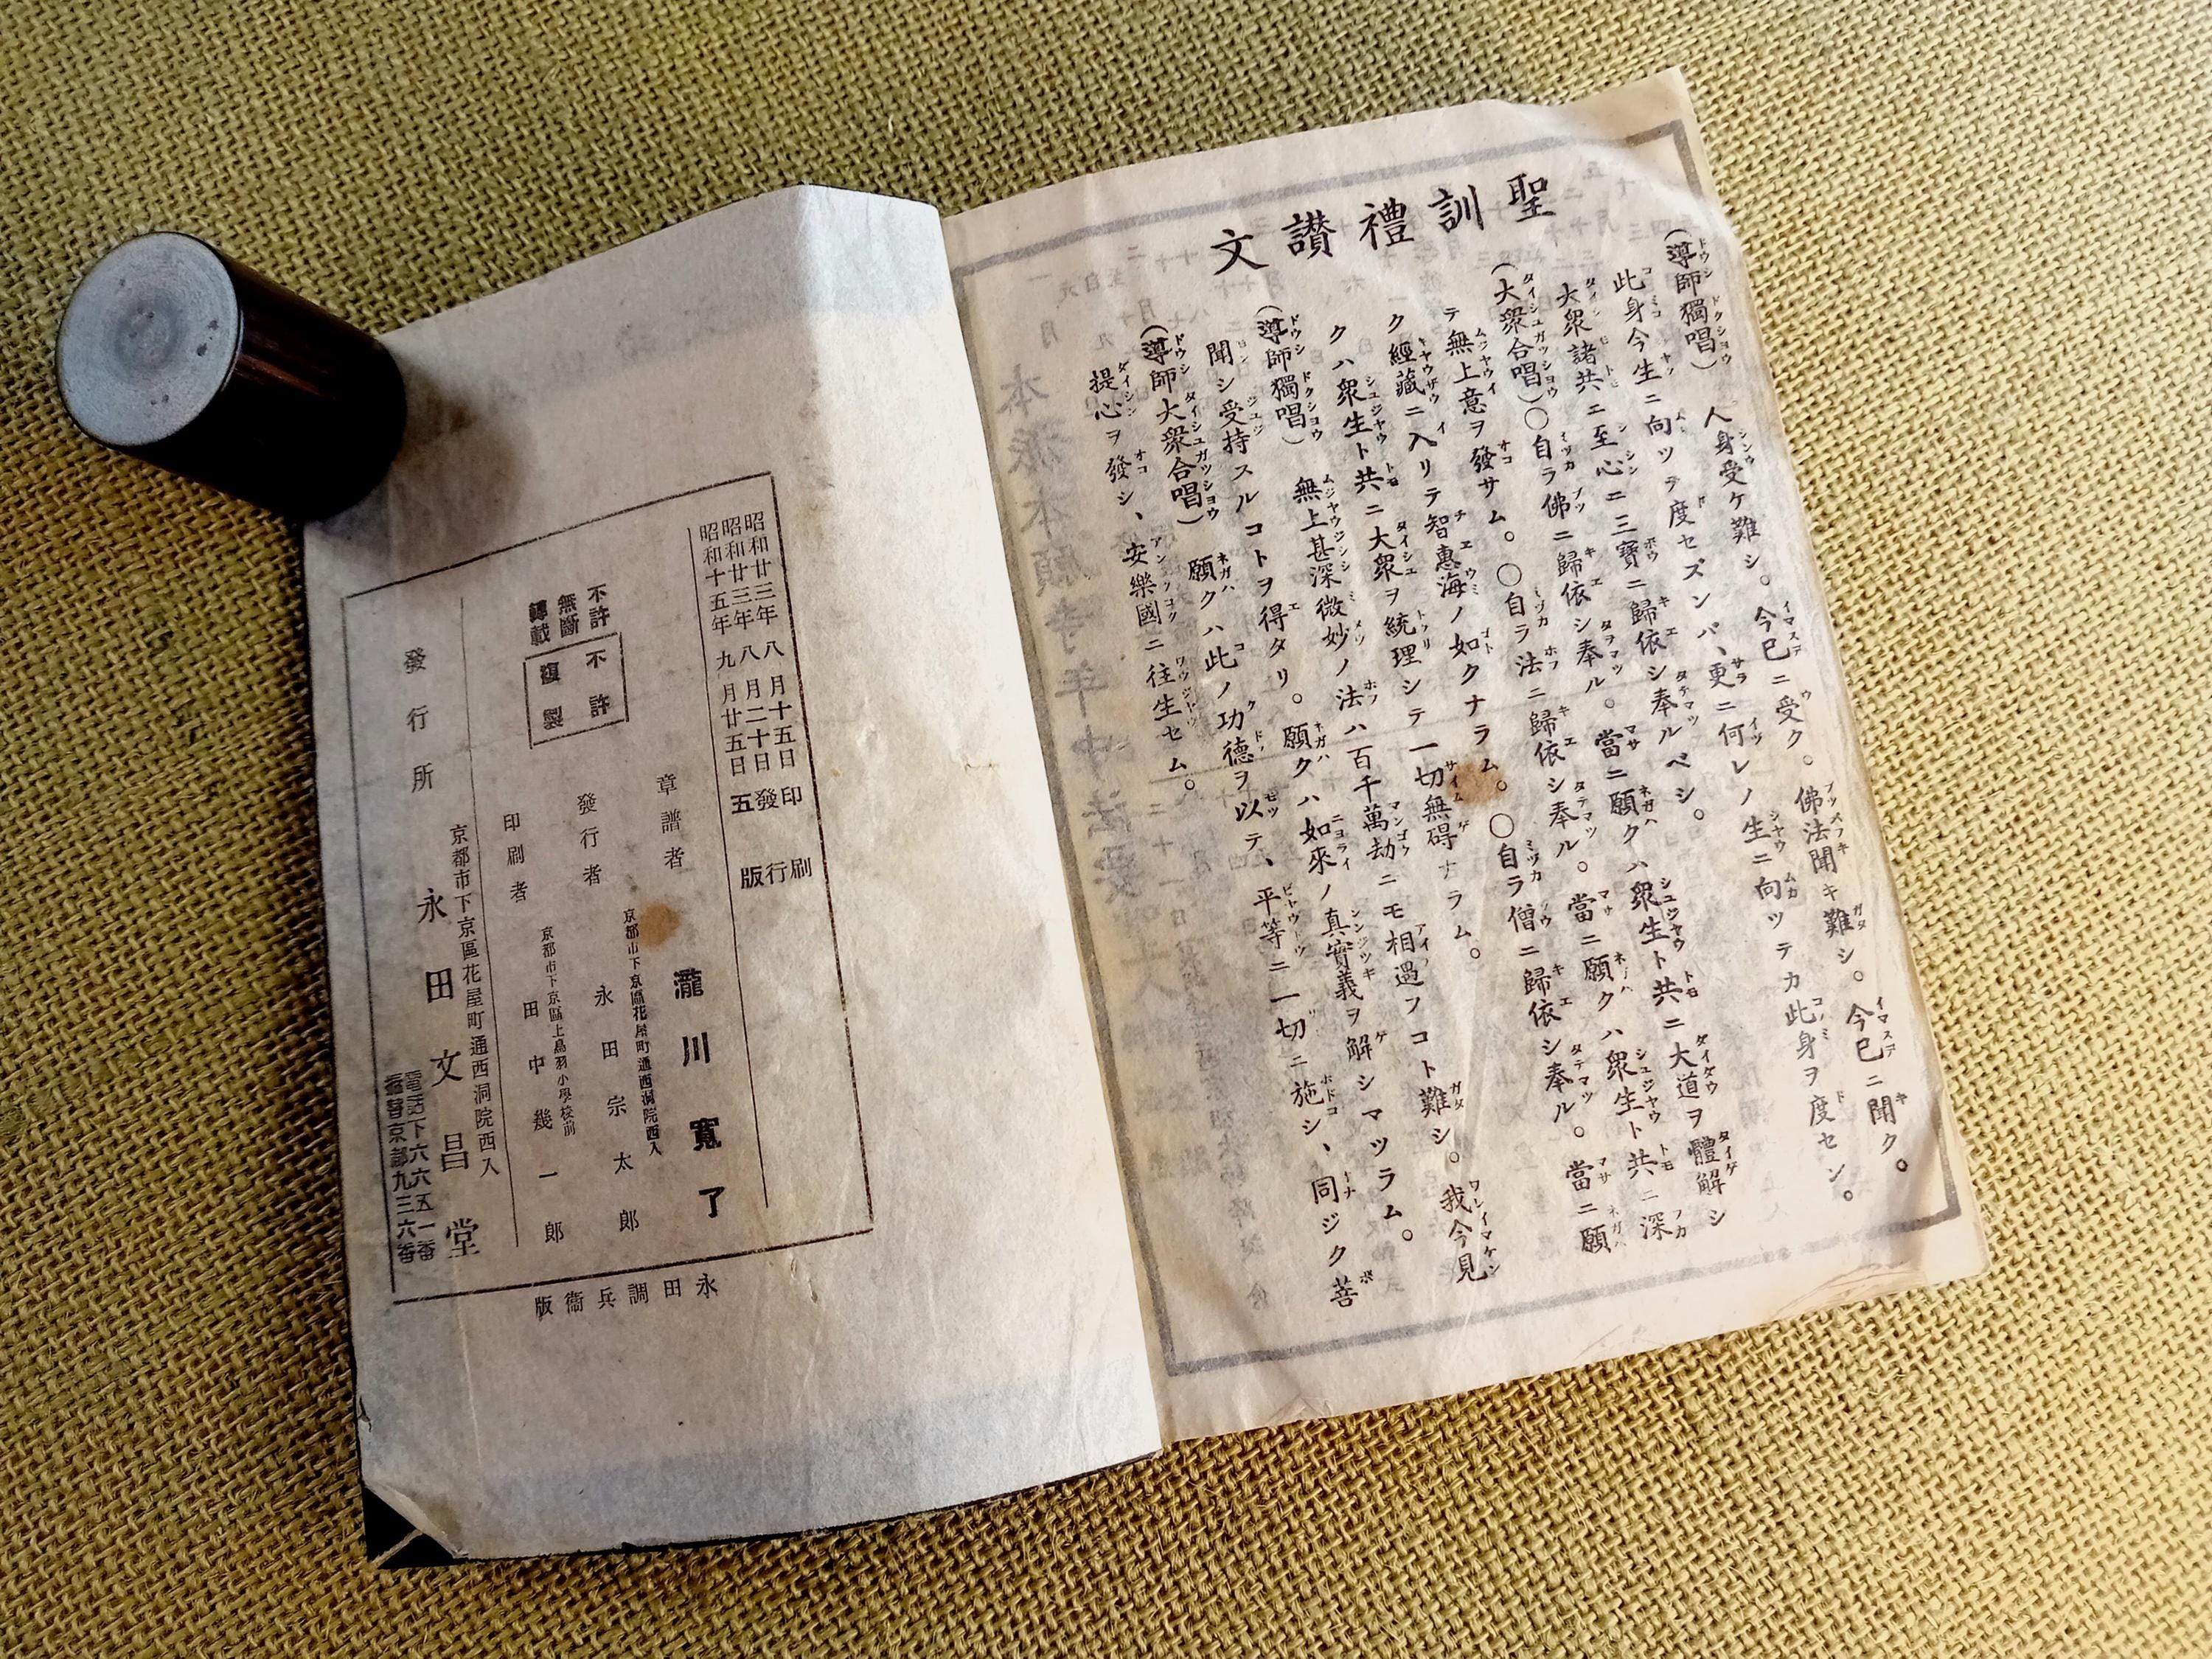 聖訓禮讃文
(導師獨唱) 人身受ケ難シ。今已ニ受ク。佛法聞キ難シ。今已ニ聞ク。
此身今生ニ向ツテ度セズンバ、更ニ何レノ生ニ向ツテカ此身ヲ度セン。
大衆諸共ニ至心ニ三寶ニ歸依シ奉ルベシ。
(大衆合唱)〇自ラ佛ニ歸依シ奉ル。當ニ願クハ衆生ト共ニ大道ヲ體解シ
テ無上意ヲ發サム。〇自ラ法ニ歸依シ奉ル。當ニ願クハ衆生ト共ニ深
ク經藏ニ入リテ智惠海ノ如クナラム。〇自ラ僧ニ歸依シ奉ル。當ニ願
クハ衆生ト共ニ大衆ヲ統理シテ一切無碍ナラム。
(導師獨唱) 無上甚深微妙ノ法ハ百千萬劫ニモ相遇フコト難シ。我今見
聞シ受持スルコトヲ得タリ。願クハ如來ノ真實義ヲ解シマツラム。
(導師大衆合唱) 願クハ此ノ功德ヲ以テ、平等ニ一切ニ施シ、同ジク菩
提心ヲ發シ、安樂國ニ往生セム。
昭和廿三年八月十五日印刷
昭和廿三年八月二十日發行
昭和十五年九月廿五日五版
不許
無斷
轉載
不許
複製
章譜者 瀧川寬了
京都市下京區花屋町通西洞院西入
發行者 永田宗太郎
京都市下京區上鳥羽小學校前
印刷者 田中幾一郎
京都市下京區花屋町通西洞院西入
發行所 永田文昌堂
電話下六六五一番
振替京都九三六番
永田調兵衞版